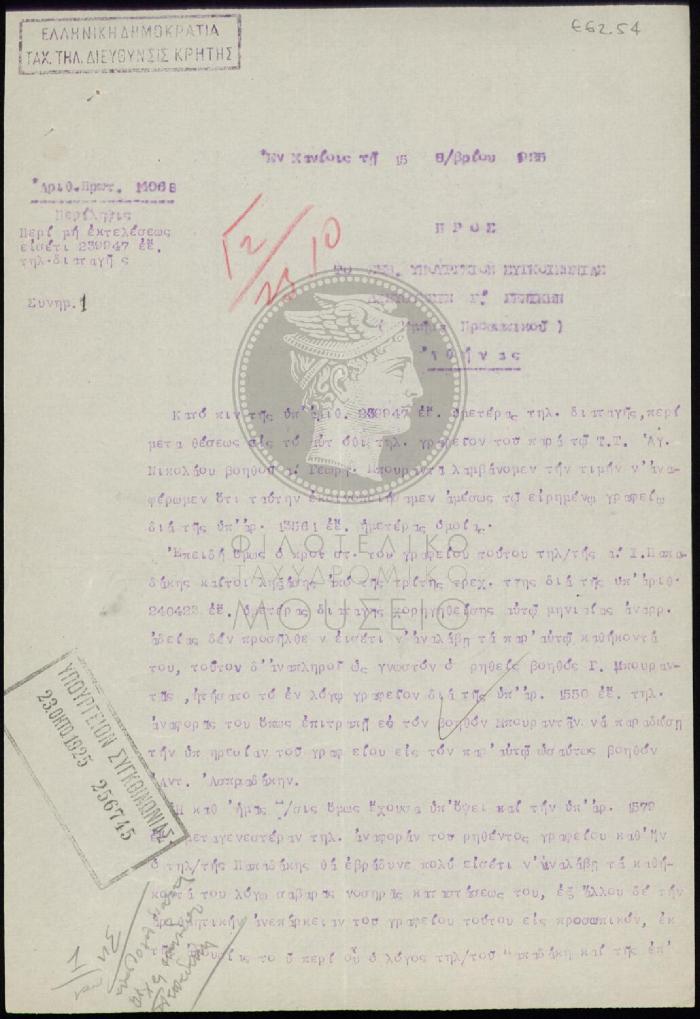 ΕΛΛΗΝΙΚΗ ΔΗΜΟΚΡΑΤΙΑ
ΤΑΧ. ΤΗΛ. ΔΙΕΥΘΥΝΣΙΣ ΚΡΗΤΗΣ
662.54
Ἐν Χανίοις τῇ 15 8/βρίου 1925
Ἀριθ. Πρωτ. 14068
Περίληψις
Περί μή ἐκτελέσεως
εἰσέτι 239947 ἐἔ.
τηλ-διαταγῆς
Συνημ. 1
12/23 10
ΠΡΟΣ
ΤΟ ΥΠΟΥΡΓΕΙΟΝ ΣΥΓΚΟΙΝΩΝΙΑΣ
( Προσωπικοῦ )
Ἀθήνας
ΦΙΛΟΤΕΛΙΚΟ
ΤΑΧΥΔΡΟΜΙΚΟ
ΜΟΥΣΕΙΟ
τῆς ὑπ' ἀριθ. 239947 ἐἔ. ὑμετέρας τηλ. διαταγῆς, περί
μεταθέσεως εἰς τό αὐτόθι τηλ. γραφεῖον τοῦ παρά τῷ Τ.Τ. Ἁγ.
Νικολάου βοηθοῦ κ. Γεωργ. Μπουραντᾶ λαμβάνομεν τήν τιμήν ν' ἀνα-
φέρωμεν ὅτι ταύτην ἐκοινοποιήσαμεν ἀμέσως τῷ εἰρημένῳ γραφείῳ
διά τῆς ὑπ' ἀρ. 13561 ἐἔ. ἡμετέρας ὁμοίας.
Ἐπειδή ὅμως ὁ προϊστ. τοῦ γραφείου τούτου τηλ/τής κ. Ι. Παπα-
δάκης καίτοι ληξάσης ἀπό τῆς τρίτης τρέχ. τῆς διά τῆς ὑπ' ἀριθ.
240423 ἐἔ. ὑμετέρας διαταγῆς χορηγηθείσης αὐτῷ μηνιαίας ἀναρρ.
ἀδείας δέν προσῆλθεν εἰσέτι ν' ἀναλάβῃ τά παρ' αὐτῷ καθήκοντά
του, τοῦτον δ' ἀναπληροῖ ὡς γνωστόν ὁ ρηθείς βοηθός Γ. Μπουραν-
τᾶς, ᾐτήσατο τό ἐν λόγῳ γραφεῖον διά τῆς ὑπ' ἀρ. 1550 ἐἔ. τηλ.
ἀναφορᾶς του ὅπως ἐπιτραπῇ εἰς τόν βοηθόν Μπουραντᾶν νά παραδώσῃ
τήν ὑπηρεσίαν τοῦ γραφείου εἰς τόν παρ' αὐτῷ ὡσαύτως βοηθόν
Ἀντ. Ἀσπραδάκην.
Ἡ καθ' ἡμᾶς Δ/σις ὅμως ἔχουσα ὑπ' ὄψει καί τήν ὑπ' ἀρ. 1579
ἐἔ. μεταγενεστέραν τηλ. ἀναφοράν τοῦ ρηθέντος γραφείου καθ' ἥν
ὁ τηλ/τής Παπαδάκης θά ἐβράδυνε πολύ εἰσέτι ν' ἀναλάβῃ τά καθή-
κοντά του λόγῳ σοβαρᾶς νοσηρᾶς καταστάσεώς του, ἐξ ἄλλου δέ τήν
ἀριθμητικήν ἀνεπάρκειαν τοῦ γραφείου τούτου εἰς προσωπικόν, ἐκ
τῆς ἀπουσίας τοῦ περί οὗ ὁ λόγος τηλ/τοῦ Παπαδάκη καί τῆς ἐπ'
ΥΠΟΥΡΓΕΙΟΝ ΣΥΓΚΟΙΝΩΝΙΑΣ
23.ΟΚΤΩ 1925 256745